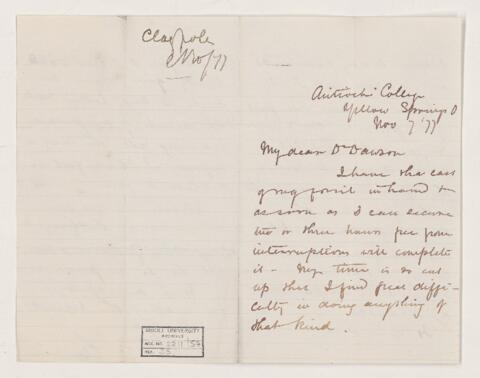 Claypole
Nov/77
Antioch College
Yellow Springs O
Nov 7 '77
My dear Dr Dawson
I have the cast
of my fossil in hand &
as soon as I can secure
two or three hours free from
interruptions will complete
it - My time is so cut
up that I find great diffi-
culty in doing anything of
that kind.
McGILL UNIVERSITY
ARCHIVES
ACC. NO.
REF.